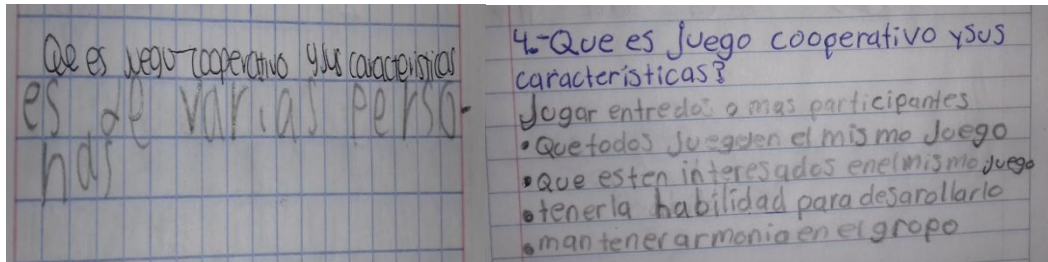 Qe es juego cooperativo y sus caracteristicas
es de varias perso-
nas
4.-Que es juego cooperativo y sus
características?
Jugar entre dos o mas participantes
• Que todos jueguen el mismo Juego
• Que esten interesados en el mismo juego
• tener la habilidad para desarollarlo
• mantener armonia en el gropo